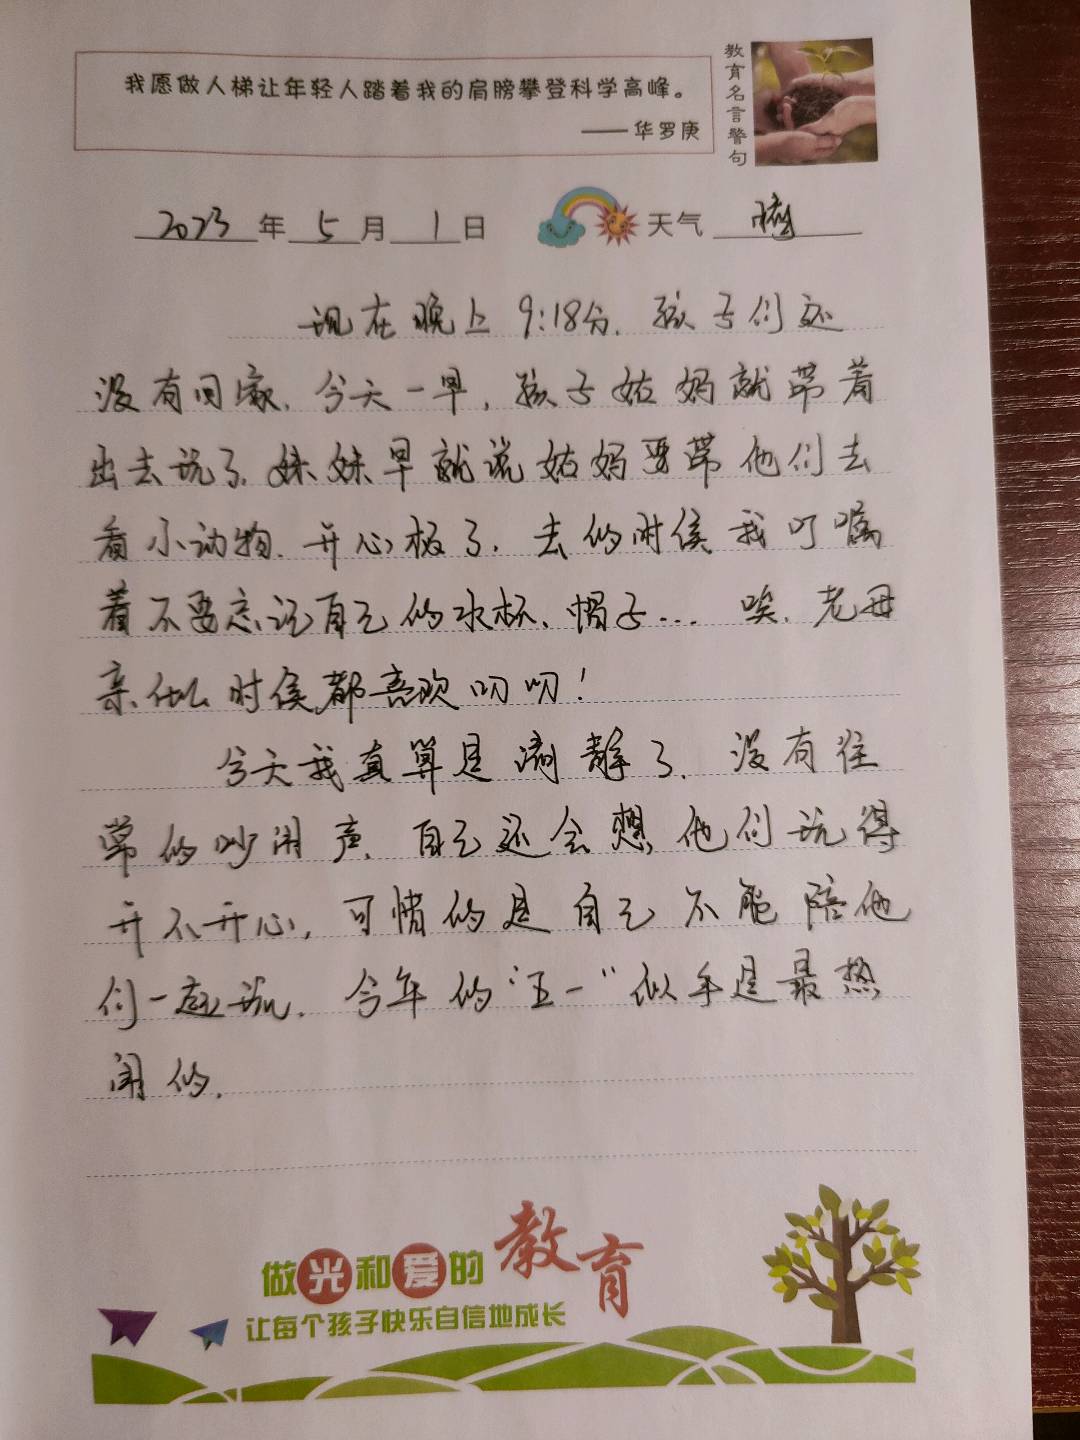 我愿做人梯让年轻人踏着我的肩膀攀登科学高峰。
——华罗庚
教育名言警句
2023年5月1日 天气 晴
现在晚上9:18分，孩子们还
没有回家，今天一早，孩子姑妈就带着
出去玩了，妹妹早就说姑妈要带他们去
看小动物，开心极了，去的时侯我叮嘱
着不要忘记自己的水杯、帽子... 唉，老母
亲什么时侯都喜欢叨叨！
今天我真算是清静了，没有往
常的吵闹声，自己还会想他们玩得
开不开心，可惜的是自己不能陪他
们一起玩，今年的“五一”似乎是最热
闹的，
做光和爱的教育
让每个孩子快乐自信地成长